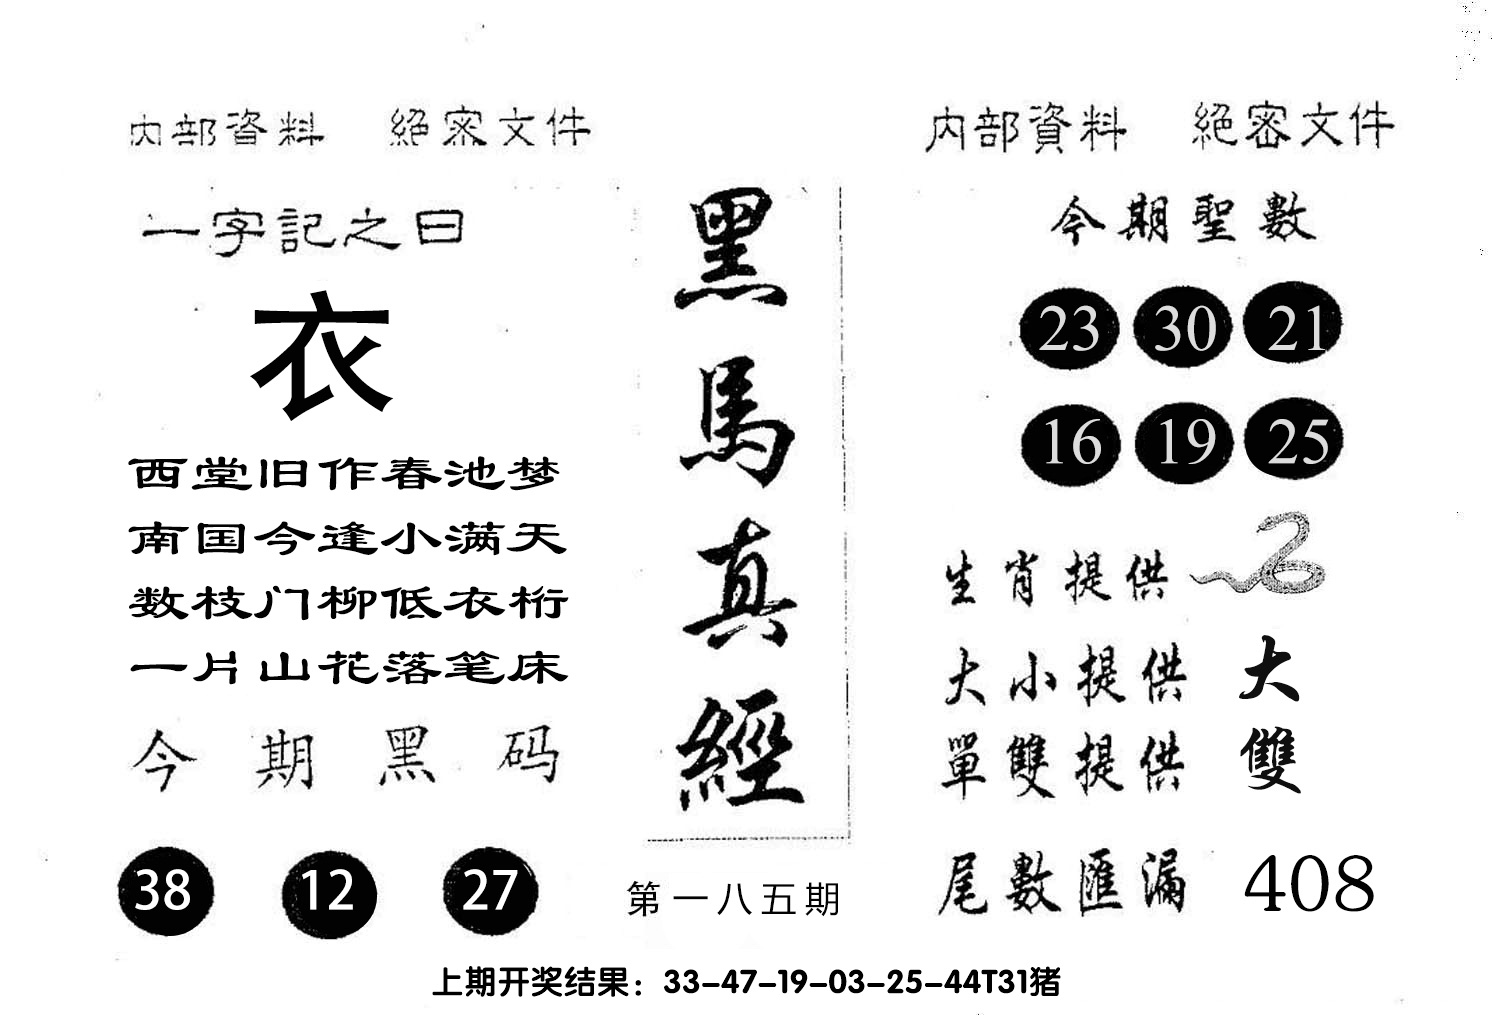 内部資料 絕密文件
一字記之曰
衣
西堂旧作春池梦
南国今逢小满天
数枝门柳低衣桁
一片山花落笔床
今期黑码
38 12 27
黑馬真經
第一八五期
内部資料 絕密文件
今期聖數
23 30 21
16 19 25
生肖提供
大小提供 大
單雙提供 雙
尾數匯漏 408
上期开奖结果：33-47-19-03-25-44T31猪